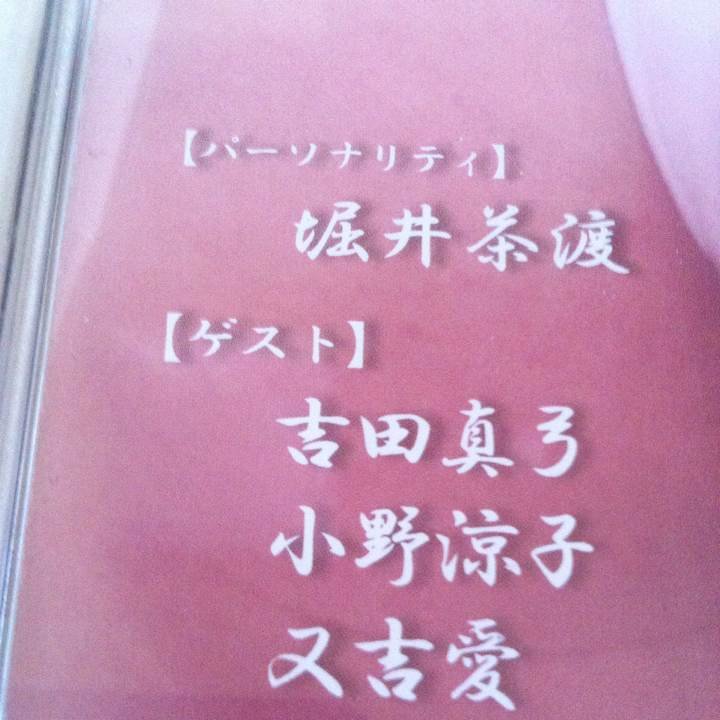 【パーソナリティ】
堀井茶渡
【ゲスト】
吉田真弓
小野涼子
又吉愛